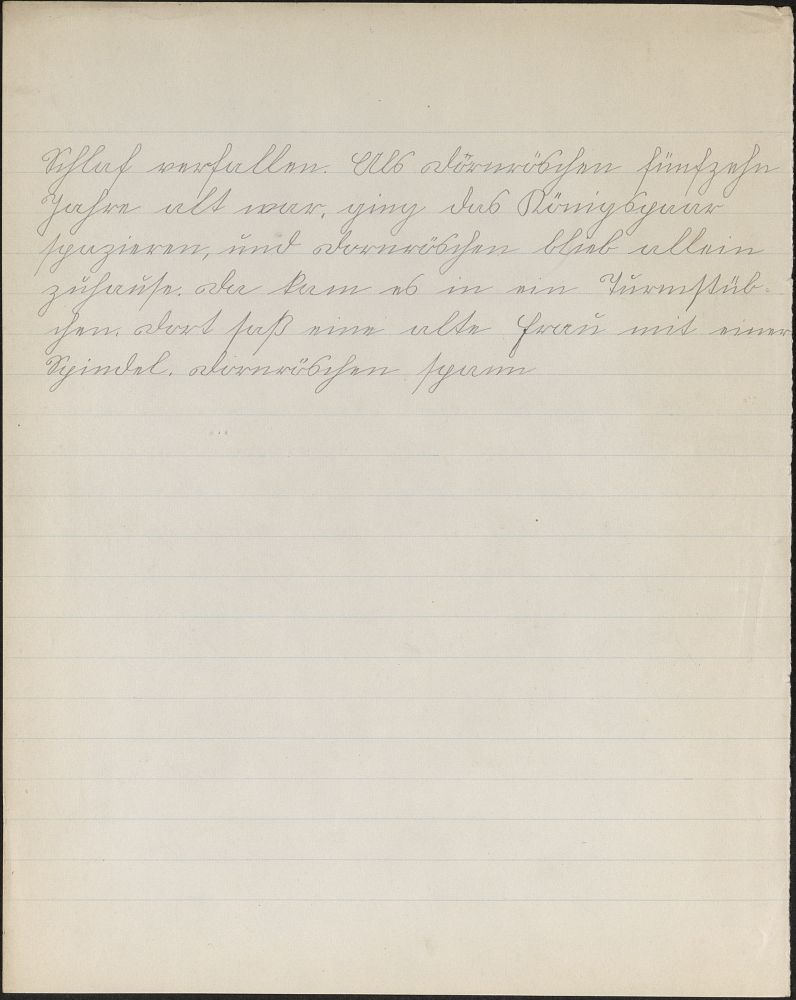 Schlaf verfallen. Als Dörnröschen fünfzehn
Jahre alt war, ging das Königspaar
spazieren, und Dornröschen blieb allein
zuhause. Da kam es in ein Turmstüb-
chen. Dort saß eine alte Frau mit einer
Spindel. Dornröschen spann